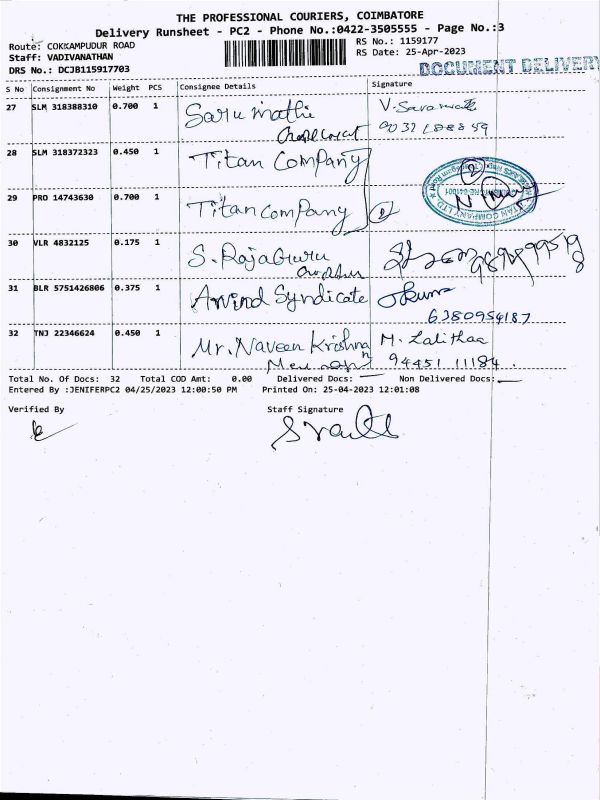 THE PROFESSIONAL COURIERS, COIMBATORE
Delivery Runsheet - PC2 - Phone No.:0422-3505555 - Page No.:3
Route: COKKAMPUDUR ROAD RS No.: 1159177
Staff: VADIVANATHAN RS Date: 25-Apr-2023
DRS No.: DCJB115917703 DOCUMENT DELIVERY
S No Consignment No Weight PCS Consignee Details Signature
27 SLM 318388310 0.700 1 Saru mathi V. Saramati
28 SLM 318372323 0.450 1 Titan Company
29 PRO 14743630 0.700 1 Titan Company 2
30 VLR 4832125 0.175 1 S. RajaGuru
31 BLR 5751426806 0.375 1 Arvind Syndicate
6380954187
32 TNJ 22346624 0.450 1 Mr. Naveen Krishna M. Lalithaa
94451 11184
Total No. Of Docs: 32 Total COD Amt: 0.00 Delivered Docs: Non Delivered Docs:
Entered By :JENIFERPC2 04/25/2023 12:00:50 PM Printed On: 25-04-2023 12:01:08
Verified By Staff Signature